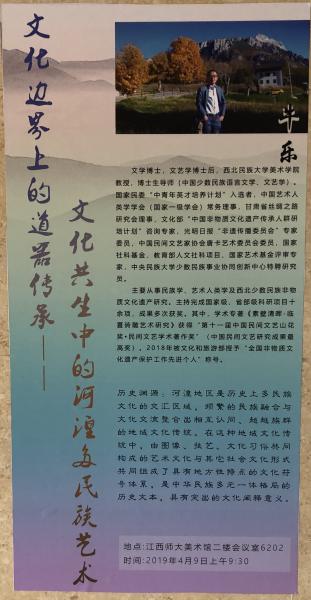 文化边界上的道器传承——
文化共生中的河湟多民族艺术
牛乐
文学博士，文艺学博士后，西北民族大学美术学院
教授，博士生导师（中国少数民族语言文学、文艺学）。
国家民委“中青年英才培养计划”入选者，中国艺术人
类学学会（国家一级学会）常务理事，甘肃省丝绸之路
研究会理事，文化部“中国非物质文化遗产传承人群研
培计划”咨询专家，光明日报“非遗传播委员会”专家
委员，中国民间文艺家协会唐卡艺术委员会委员，国家
社科基金，教育部人文社科项目，国家艺术基金评审专
家，中央民族大学少数民族事业协同创新中心特聘研究
员。
主要从事民族学、艺术人类学及西北少数民族非物
质文化遗产研究。主持完成国家级、省部级科研项目十
余项，成果多次获奖。其中，学术专著《素壁清晖-临
夏砖雕艺术研究》获得“第十一届中国民间文艺山花
奖•民间文艺学术著作奖”（中国民间文艺研究成果最
高奖）。2018年被文化和旅游部授予“全国非物质文
化遗产保护工作先进个人”称号。
历史渊源：河湟地区是历史上多民族
文化的交汇区域，频繁的民族融合与
文化交流整合出相互认同、超越族群
的地域文化传统。在这种地域文化传
统中，由图像、技艺、文化习俗共同
构成的艺术文化与其它社会文化形式
共同组成了具有地方性特点的文化符
号体系，是中华民族多元一体格局的
历史文本，具有突出的文化阐释意义。
地点：江西师大美术馆二楼会议室6202
时间：2019年4月9日上午9:30